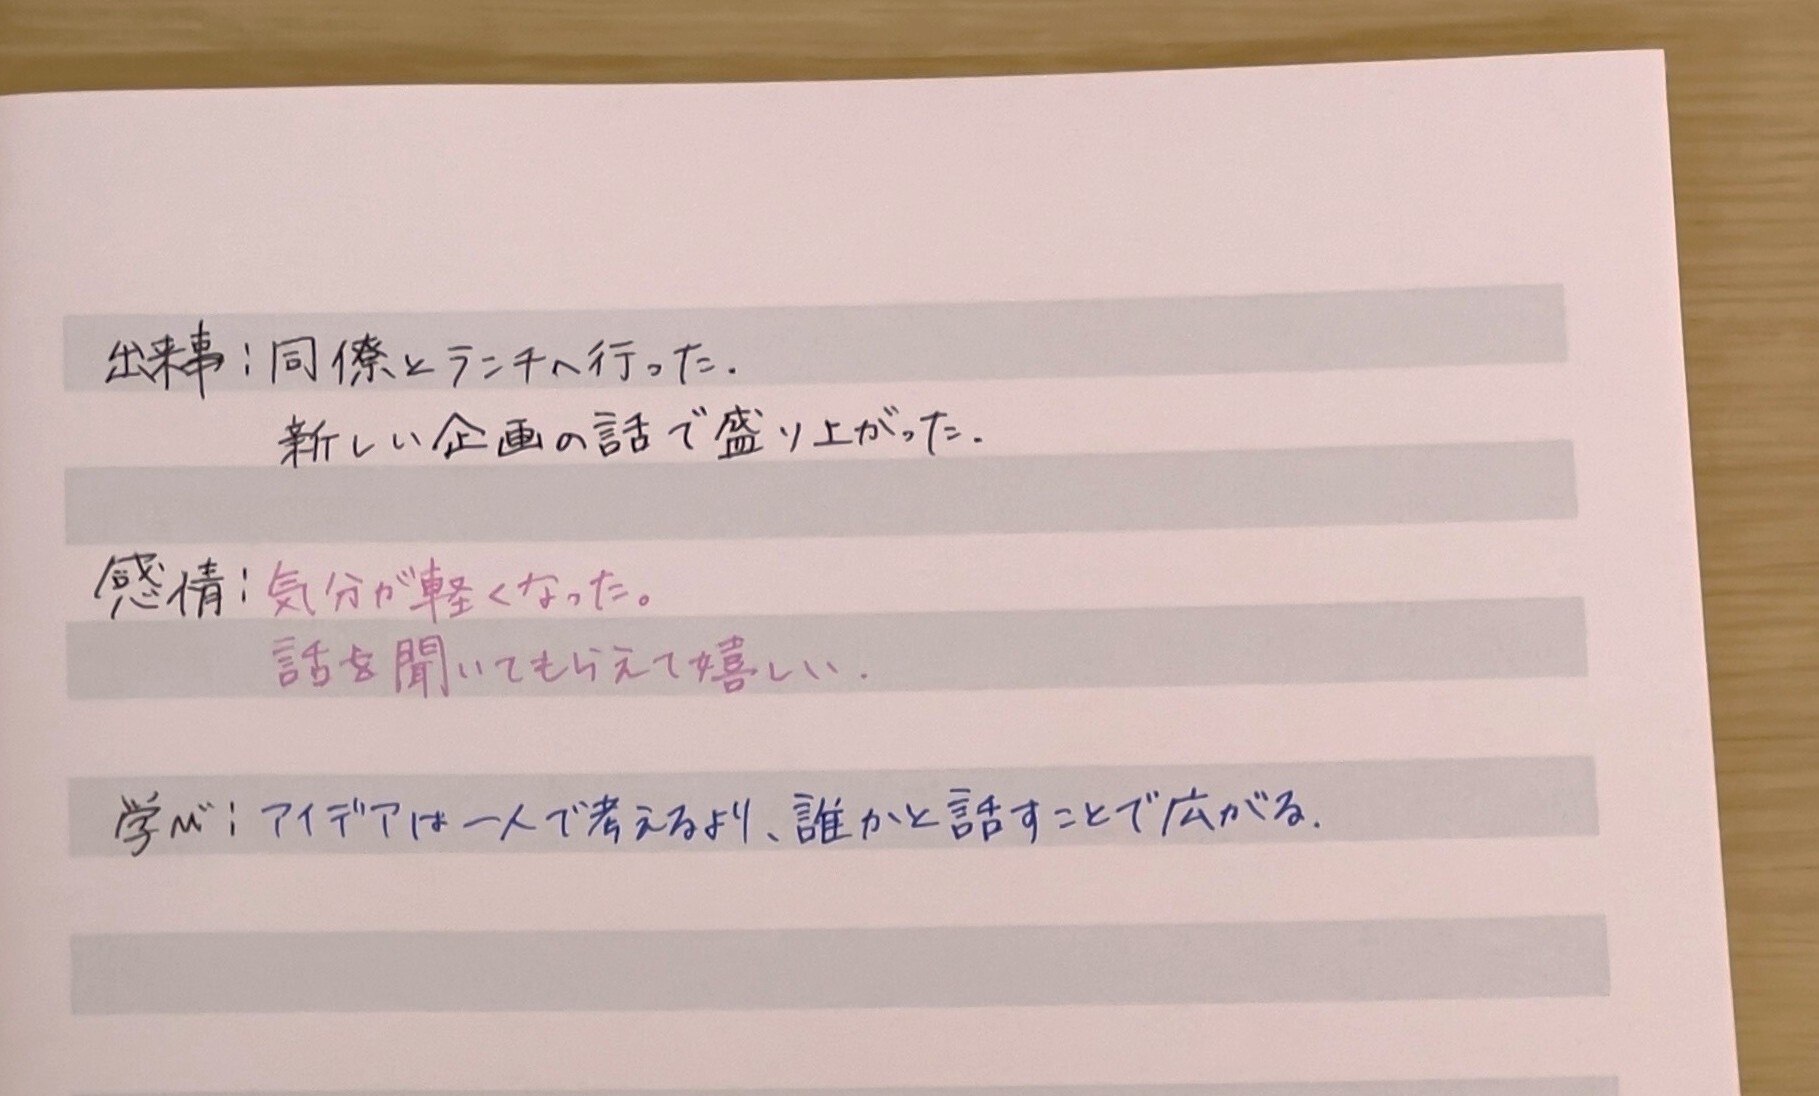 出来事：同僚とランチへ行った.
新しい企画の話で盛り上がった.
感情：気分が軽くなった。
話を聞いてもらえて嬉しい.
学び：アイデアは一人で考えるより、誰かと話すことで広がる.